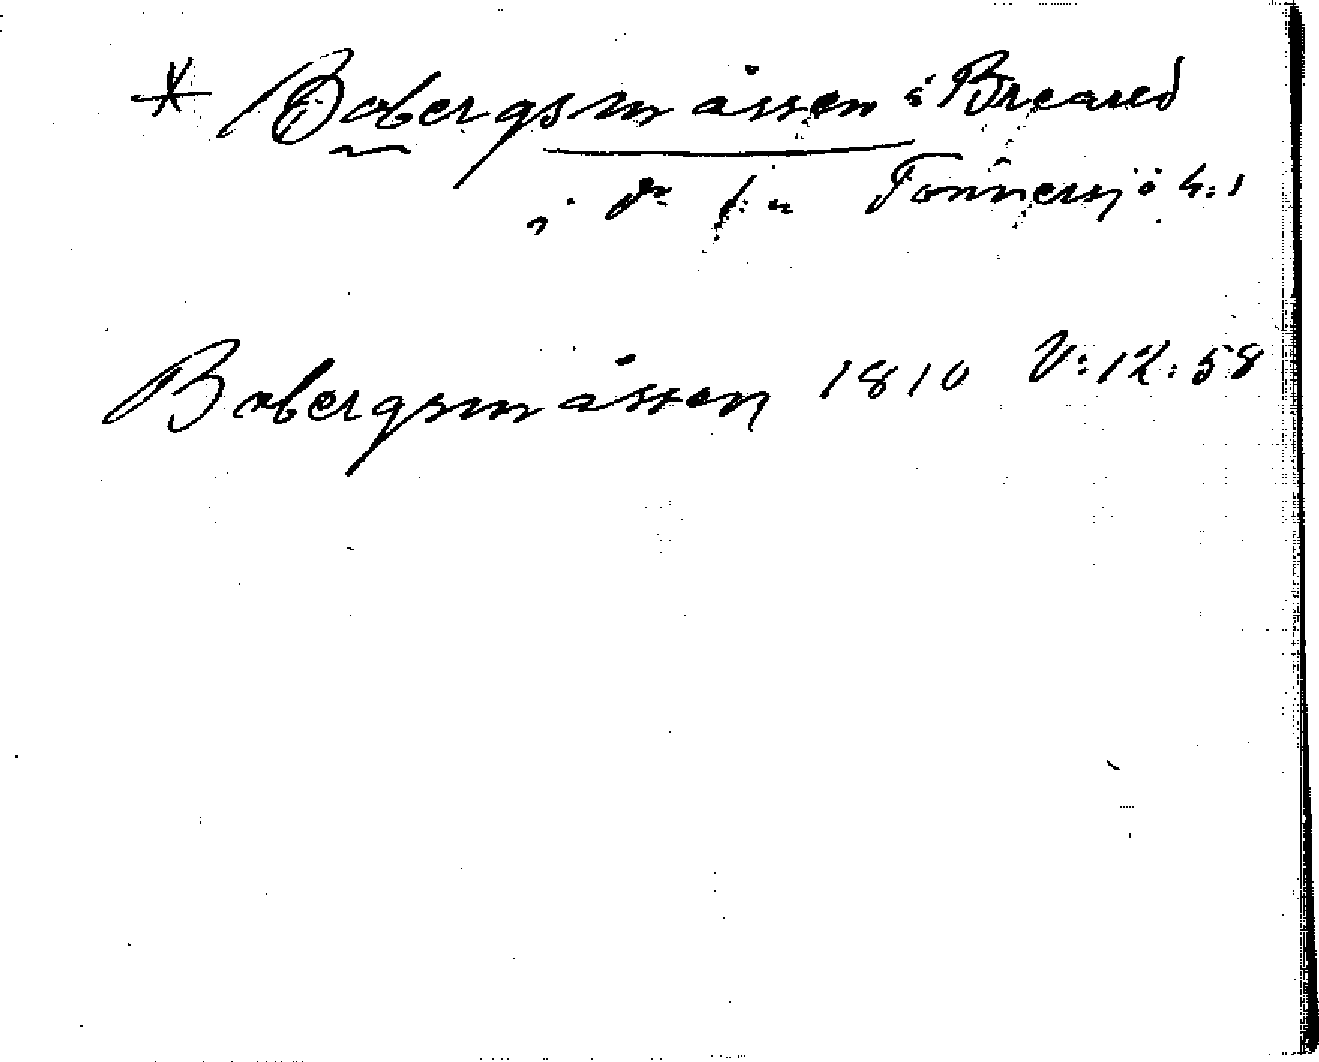 * Bobergsmåssen i Breared
i do s:n Tönnersjö h:d
Bobergsmåssen 1810 V:12:58